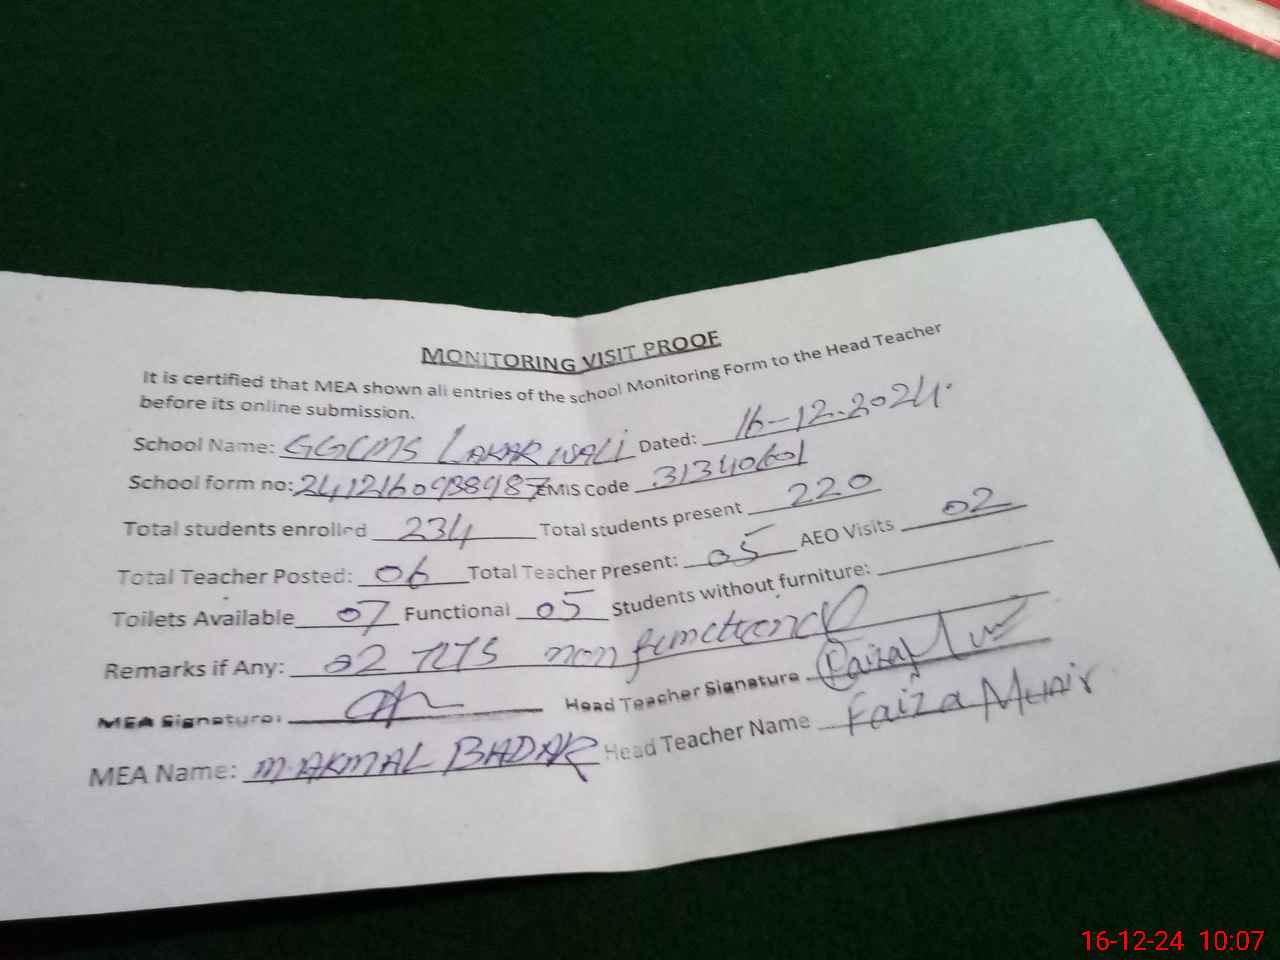 MONITORING VISIT PROOF
It is certified that MEA shown all entries of the school Monitoring Form to the Head Teacher
before its online submission.
School Name: GGCMS LAKAR WALI Dated: 16-12-2024.
School form no: 2412160938987 EMIS Code 31340601
Total students enrolled 234 Total students present 220
Total Teacher Posted: 06 Total Teacher Present: 05 AEO Visits 02
Toilets Available 07 Functional 05 Students without furniture:
Remarks if Any: 02 TLTS non functional
MEA Signature: Head Teacher Signature Faiza
MEA Name: M. AKMAL BADAR Head Teacher Name Faiza Munir
16-12-24 10:07